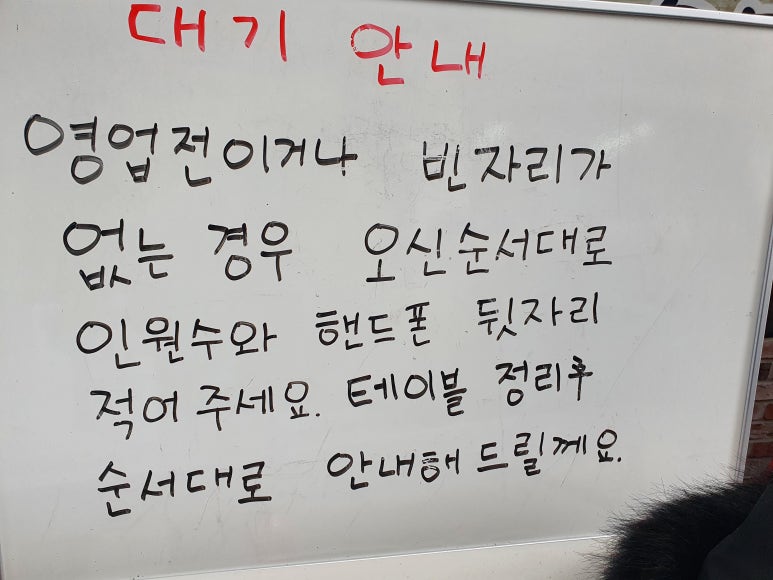 대기 안내
영업전이거나 빈자리가
없는 경우 오신순서대로
인원수와 핸드폰 뒷자리
적어 주세요. 테이블 정리후
순서대로 안내해 드릴께요.